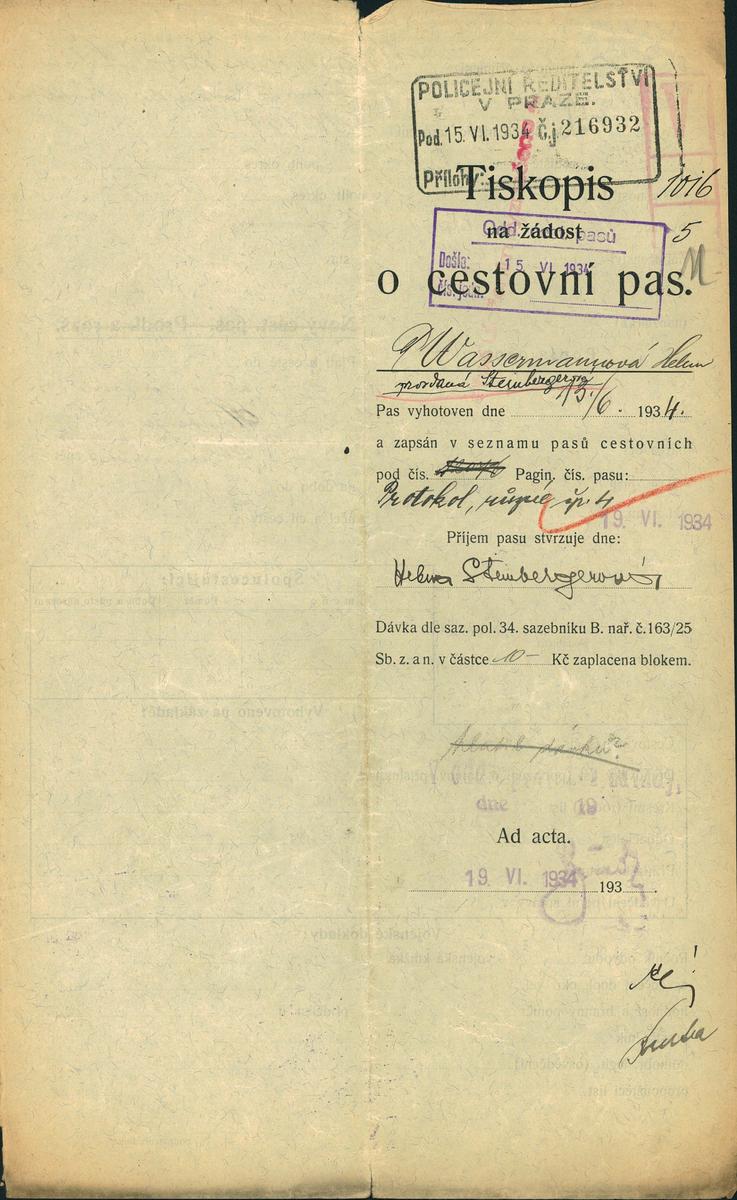 POLICEJNÍ ŘEDITELSTVÍ
V PRAZE.
Pod. 15. VI. 1934 Č.j. 216932
Přílohy:
Tiskopis
1016
5
na žádost
Odd. pasů
Došlo: 15 VI 1934
o cestovní pas.
Wassermannová Helena
provdaná Steinbergerová
Pas vyhotoven dne 15/6. 1934.
a zapsán v seznamu pasů cestovních
pod čís. Pagin. čís. pasu:
Protokol,
19. VI. 1934
Příjem pasu stvrzuje dne:
Helena Steinbergerová
Dávka dle saz. pol. 34. sazebníku B. nař. č. 163/25
Sb. z. a n. v částce 10- Kč zaplacena blokem.
dne 19
Ad acta.
19. VI. 1934 193